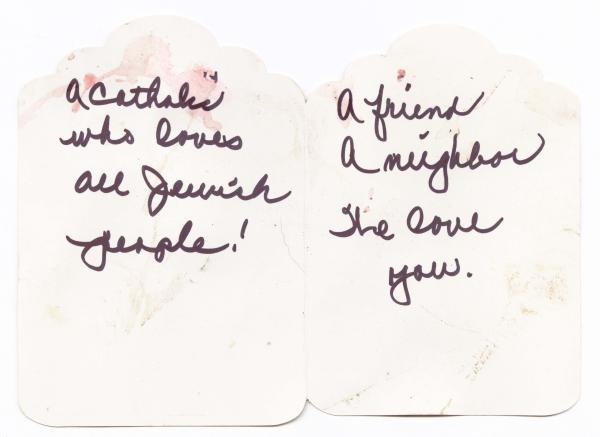 A Catholic
who loves
all Jewish
people!
A friend
A neighbor
We love
you.